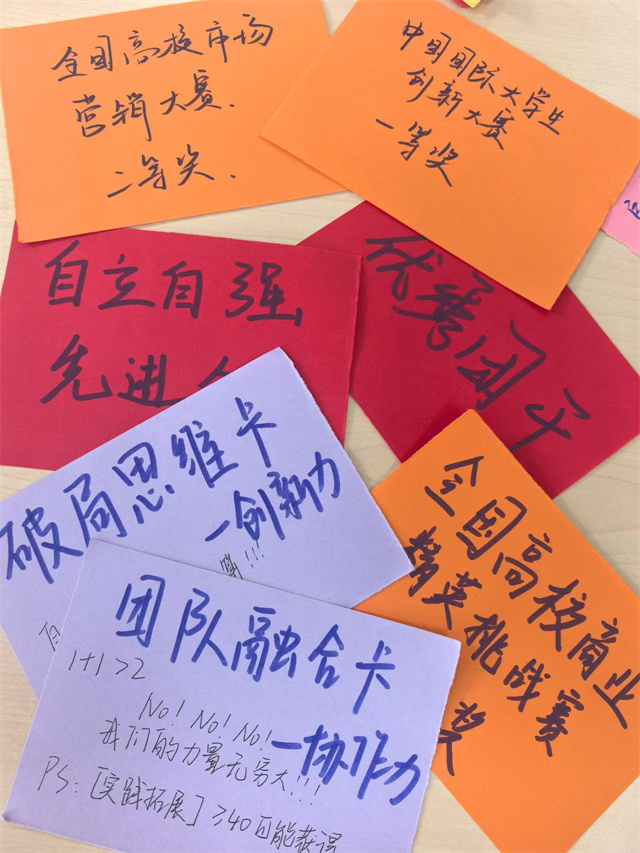 全国高校市场
营销大赛.
二等奖.
中国国际大学生
创新大赛
一等奖
自立自强
先进
优秀团干
破局思维卡
一创新力
!!!
全国高校商业
精英挑战赛
奖
团队融合卡
1+1>2
No! No! No!
我们的力量无穷大!!!
一协作力
PS:[实践拓展]≥40可能获得